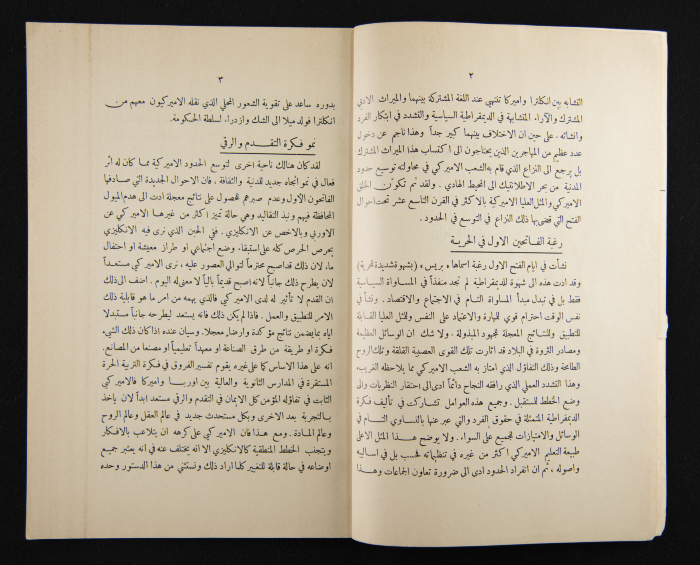 ٢
التشابه بين انكلترا واميركا تنتهي عند اللغة المشتركة بينهما والميراث الادبي
المشترك والآراء المتشابهة في الديمقراطية السياسية والتشدد في ابتكار الفرد
وانشائه . على حين ان الاختلاف بينهما كبير جداً وهذا ناجم عن دخول
عدد عظيم من المهاجرين الذين يحتاجون الى اكتساب هذا الميراث المشترك
بل يرجع الى النزاع الذي قام به الشعب الاميركي في محاولته توسيع حدود
المدنية من بحر الاطلانتيك الى المحيط الهادي . ولقد تم تكوّن الخلق
الاميركي والمثل العليا الاميركية بالاكثر في القرن التاسع عشر تحت احوال
الفتح التي قضى بها ذلك النزاع في التوسع في الحدود .
رغبة الفاتحين الاول في الحرية
نشأت في ايام الفتح الاول رغبة اسماها « بريس » ( بشهوة شديدة للحرية )
وقد ادت هذه الى شهوة للديمقراطية لم تجد منفذاً في المساواة السياسية
فقط بل في تبدل مبدأ المساواة التام في الاجتماع والاقتصاد . ونشأ في
نفس الوقت احترام قوي للمهارة والاعتماد على النفس وللمثل العليا القابلة
للتطبيق وللنتائج المعجلة للجهود المبذولة . ولا شك ان الوسائل العظيمة
ومصادر الثروة في البلاد قد اثارت تلك القوى العصبية القلقة وتلك الروح
الطامحة وذلك التفاؤل الذي امتاز به الشعب الاميركي مما يلاحظه الغريب.
وهذا التشدد العملي الذي رافقه النجاح دائماً ادى الى احتقار النظريات والى
وضع الخطط للمستقبل . وجميع هذه العوامل تشاركت في تأليف فكرة
الديمقراطية المتمثلة في حقوق الفرد والتي عبر عنها بالتساوي التام في
الوسائل والامتيازات للجميع على السواء . ولا يوضح هذا المثل الاعلى
طبيعة التعليم الاميركي اكثر من غيره في تنظيماته فحسب بل في اساليبه
واصوله ، ثم ان انفراد الحدود ادى الى ضرورة تعاون الجماعات وهذا
٣
بدوره ساعد على تقوية الشعور المحلي الذي نقله الاميركيون معهم من
انكلترا فولد ميلا الى الشك وازدراء لسلطة الحكومة .
نمو فكرة التقدم والرقي
لقد كان هنالك ناحية اخرى لتوسع الحدود الاميركية مما كان له اثر
فعال في نمو اتجاه جديد للمدنية والثقافة . فان الاحوال الجديدة التي صادفها
الفاتحون الاول وعدم صبرهم للحصول على نتائج معجلة ادت الى هدم الميول
المحافظة فيهم ونبذ التقاليد وهي حالة تميز اكثر من غيرها الاميركي عن
الاوربي وبالاخص عن الانكليزي . ففي الحين الذي نرى فيه الانكليزي
يحرص الحرص كله على استبقاء وضع اجتماعي او طراز معيشة او احتفال
ما، لان ذلك قد اصبح محترماً لتوالي العصور عليه ، نرى الاميركي مستعداً
لان يطرح ذلك جانباً لانه اصبح قديماً بالياً لا معنى له اليوم . اضف الى ذلك
ان القدم لا تأثير له لدى الاميركي فالذي يهمه من امر ما هو قابلية ذلك
الامر للتطبيق والعمل . فاذا لم يكن ذلك فانه يستعد ليطرحه جانباً مستبدلا
اياه بما يضمن نتائج مؤكدة وارضاء معجلا. وسيان عنده اذا كان ذلك الشيء
فكرة او طريقة من طرق الصناعة او معهداً تعليمياً او مصنعا من المصانع.
انه على هذا الاساس كما على غيره يقوم تفسير الفروق في فكرة التربية الحرة
المستقرة في المدارس الثانوية والعالية بين اوربا واميركا فالاميركي
الثابت في تفاؤله المؤمن كل الايمان في التقدم والرقي مستعد ابداً لان يأخذ
بالتجربة بعد الاخرى وبكل مستحدث جديد في عالم العقل وعالم الروح
وعالم المادة . ومع هذا فان الاميركي على كرهه ان يتلاعب بالافكار
ويتجنب الخطط المنطقية كالانكليزي الا انه يختلف عنه في انه يعتبر جميع
اوضاعه في حالة قابلة للتغيير كلما اراد ذلك ونستثني من هذا الدستور وحده